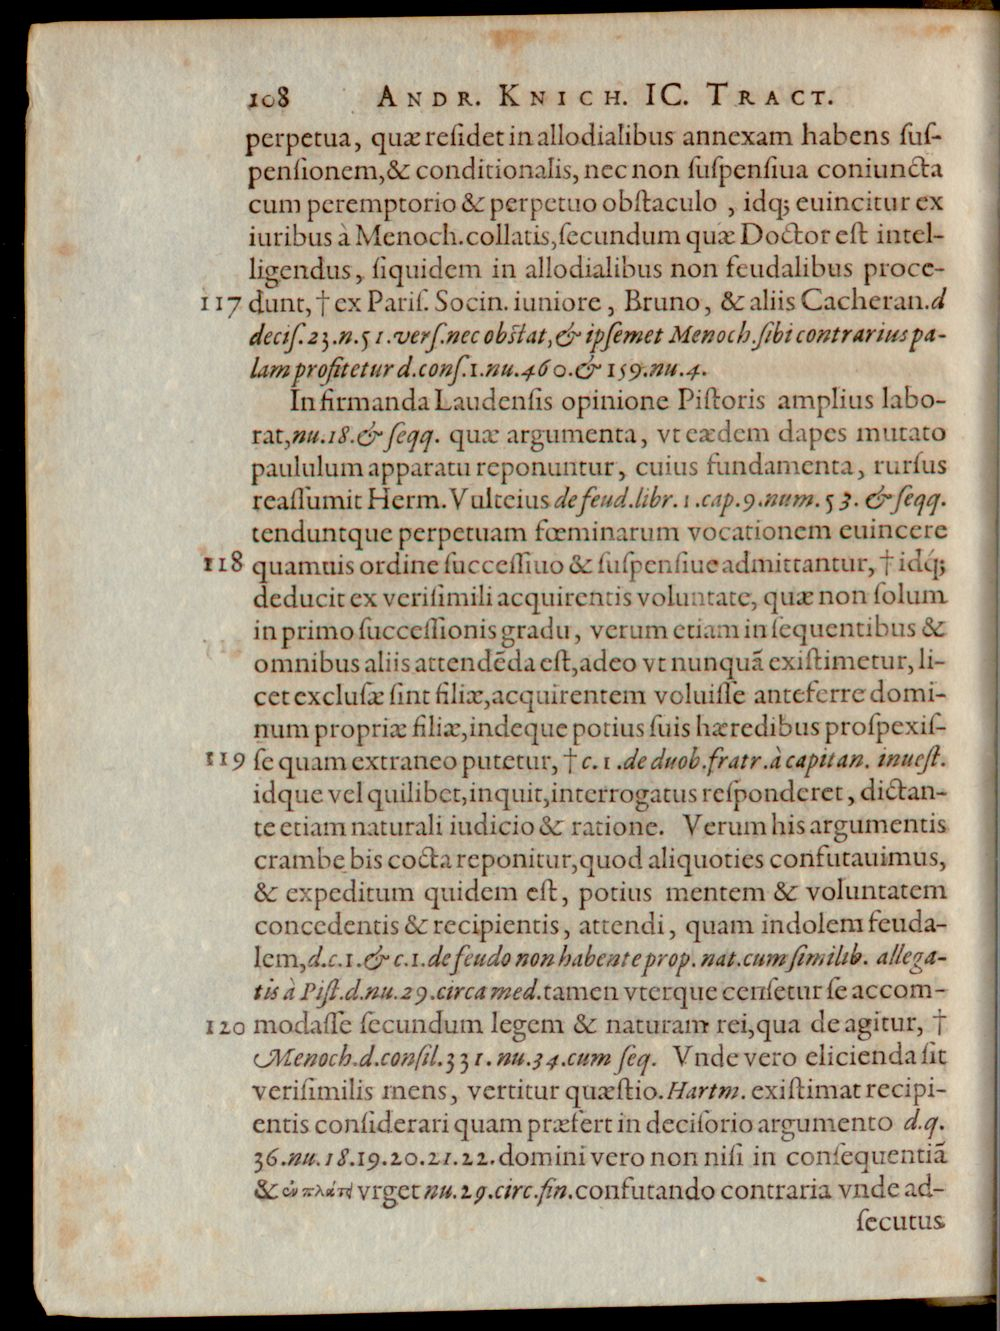 108 ANDR. KNICH. IC. TRACT.
perpetua, quæ reſidet in allodialibus annexam habens ſuſ-
penſionem, & conditionalis, nec non ſuſpenſiua coniuncta
cum peremptorio & perpetuo obſtaculo , idq; euincitur ex
iuribus à Menoch. collatis, ſecundum quæ Doctor eſt intel-
ligendus, ſiquidem in allodialibus non feudalibus proce-
117 dunt, † ex Pariſ. Socin. iuniore, Bruno, & aliis Cacheran. d
deciſ. 23. n. 51. verſ. nec obſtat, & ipſemet Menoch. ſibi contrarius pa-
lam profitetur d. conſ. 1. nu. 460. & 159. nu. 4.
In firmanda Laudenſis opinione Piſtoris amplius labo-
rat, nu. 18. & ſeqq. quæ argumenta, vt eædem dapes mutato
paululum apparatu reponuntur, cuius fundamenta, rurſus
reaſſumit Herm. Vulteius de feud. libr. 1. cap. 9. num. 53. & ſeqq.
tenduntque perpetuam fœminarum vocationem euincere
118 quamuis ordine ſucceſſiuo & ſuſpenſiue admittantur, † idq́;
deducit ex veriſimili acquirentis voluntate, quæ non ſolum
in primo ſucceſſionis gradu, verum etiam in ſequentibus &
omnibus aliis attendẽda eſt, adeo vt nunquã exiſtimetur, li-
cet excluſæ ſint filiæ, acquirentem voluiſſe anteferre domi-
num propriæ filiæ, indeque potius ſuis hæredibus proſpexiſ-
119 ſe quam extraneo putetur, † c. 1. de duob. fratr. à capitan. inueſt.
idque vel quilibet, inquit, interrogatus reſponderet, dictan-
te etiam naturali iudicio & ratione. Verum his argumentis
crambe bis cocta reponitur, quod aliquoties confutauimus,
& expeditum quidem eſt, potius mentem & voluntatem
concedentis & recipientis, attendi, quam indolem feuda-
lem, d. c. 1. & c. 1. de feudo non habente prop. nat. cum ſimilib. allega-
tis à Piſt. d. nu. 29. circa med. tamen vterque cenſetur ſe accom-
120 modaſſe ſecundum legem & naturam rei, qua de agitur, †
Menoch. d. conſil. 331. nu. 34. cum ſeq. Vnde vero elicienda ſit
veriſimilis mens, vertitur quæſtio. Hartm. exiſtimat recipi-
entis conſiderari quam præfert in deciſorio argumento d. q.
36. nu. 18. 19. 20. 21. 22. domini vero non niſi in conſequentiã
& vrget nu. 29. circ. fin. confutando contraria vnde ad-
ſecutus